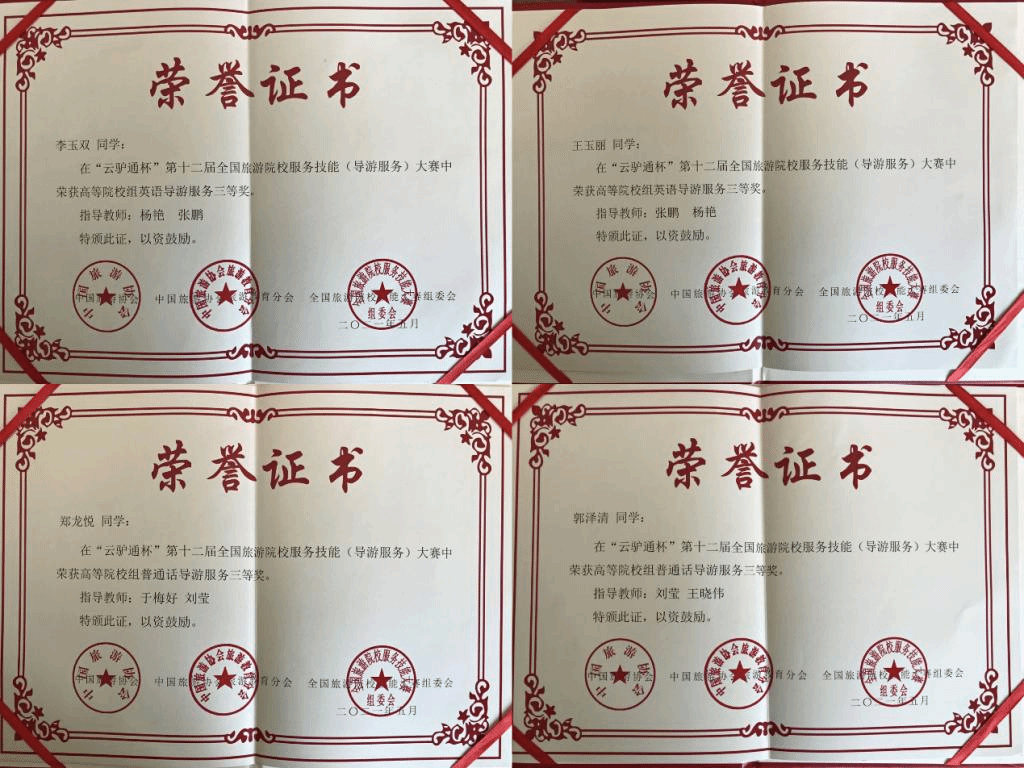 荣誉证书
李玉双 同学：
在“云驴通杯”第十二届全国旅游院校服务技能（导游服务）大赛中
荣获高等院校组英语导游服务三等奖。
指导教师：杨艳 张鹏
特颁此证，以资鼓励。
中国旅游协会 中国旅游协会旅游教育分会 全国旅游院校服务技能大赛组委会
二〇二一年五月
荣誉证书
王玉丽 同学：
在“云驴通杯”第十二届全国旅游院校服务技能（导游服务）大赛中
荣获高等院校组英语导游服务三等奖。
指导教师：张鹏 杨艳
特颁此证，以资鼓励。
中国旅游协会 中国旅游协会旅游教育分会 全国旅游院校服务技能大赛组委会
二〇二一年五月
荣誉证书
郑龙悦 同学：
在“云驴通杯”第十二届全国旅游院校服务技能（导游服务）大赛中
荣获高等院校组普通话导游服务三等奖。
指导教师：于梅好 刘莹
特颁此证，以资鼓励。
中国旅游协会 中国旅游协会旅游教育分会 全国旅游院校服务技能大赛组委会
二〇二一年五月
荣誉证书
郭泽清 同学：
在“云驴通杯”第十二届全国旅游院校服务技能（导游服务）大赛中
荣获高等院校组普通话导游服务三等奖。
指导教师：刘莹 王晓伟
特颁此证，以资鼓励。
中国旅游协会 中国旅游协会旅游教育分会 全国旅游院校服务技能大赛组委会
二〇二一年五月